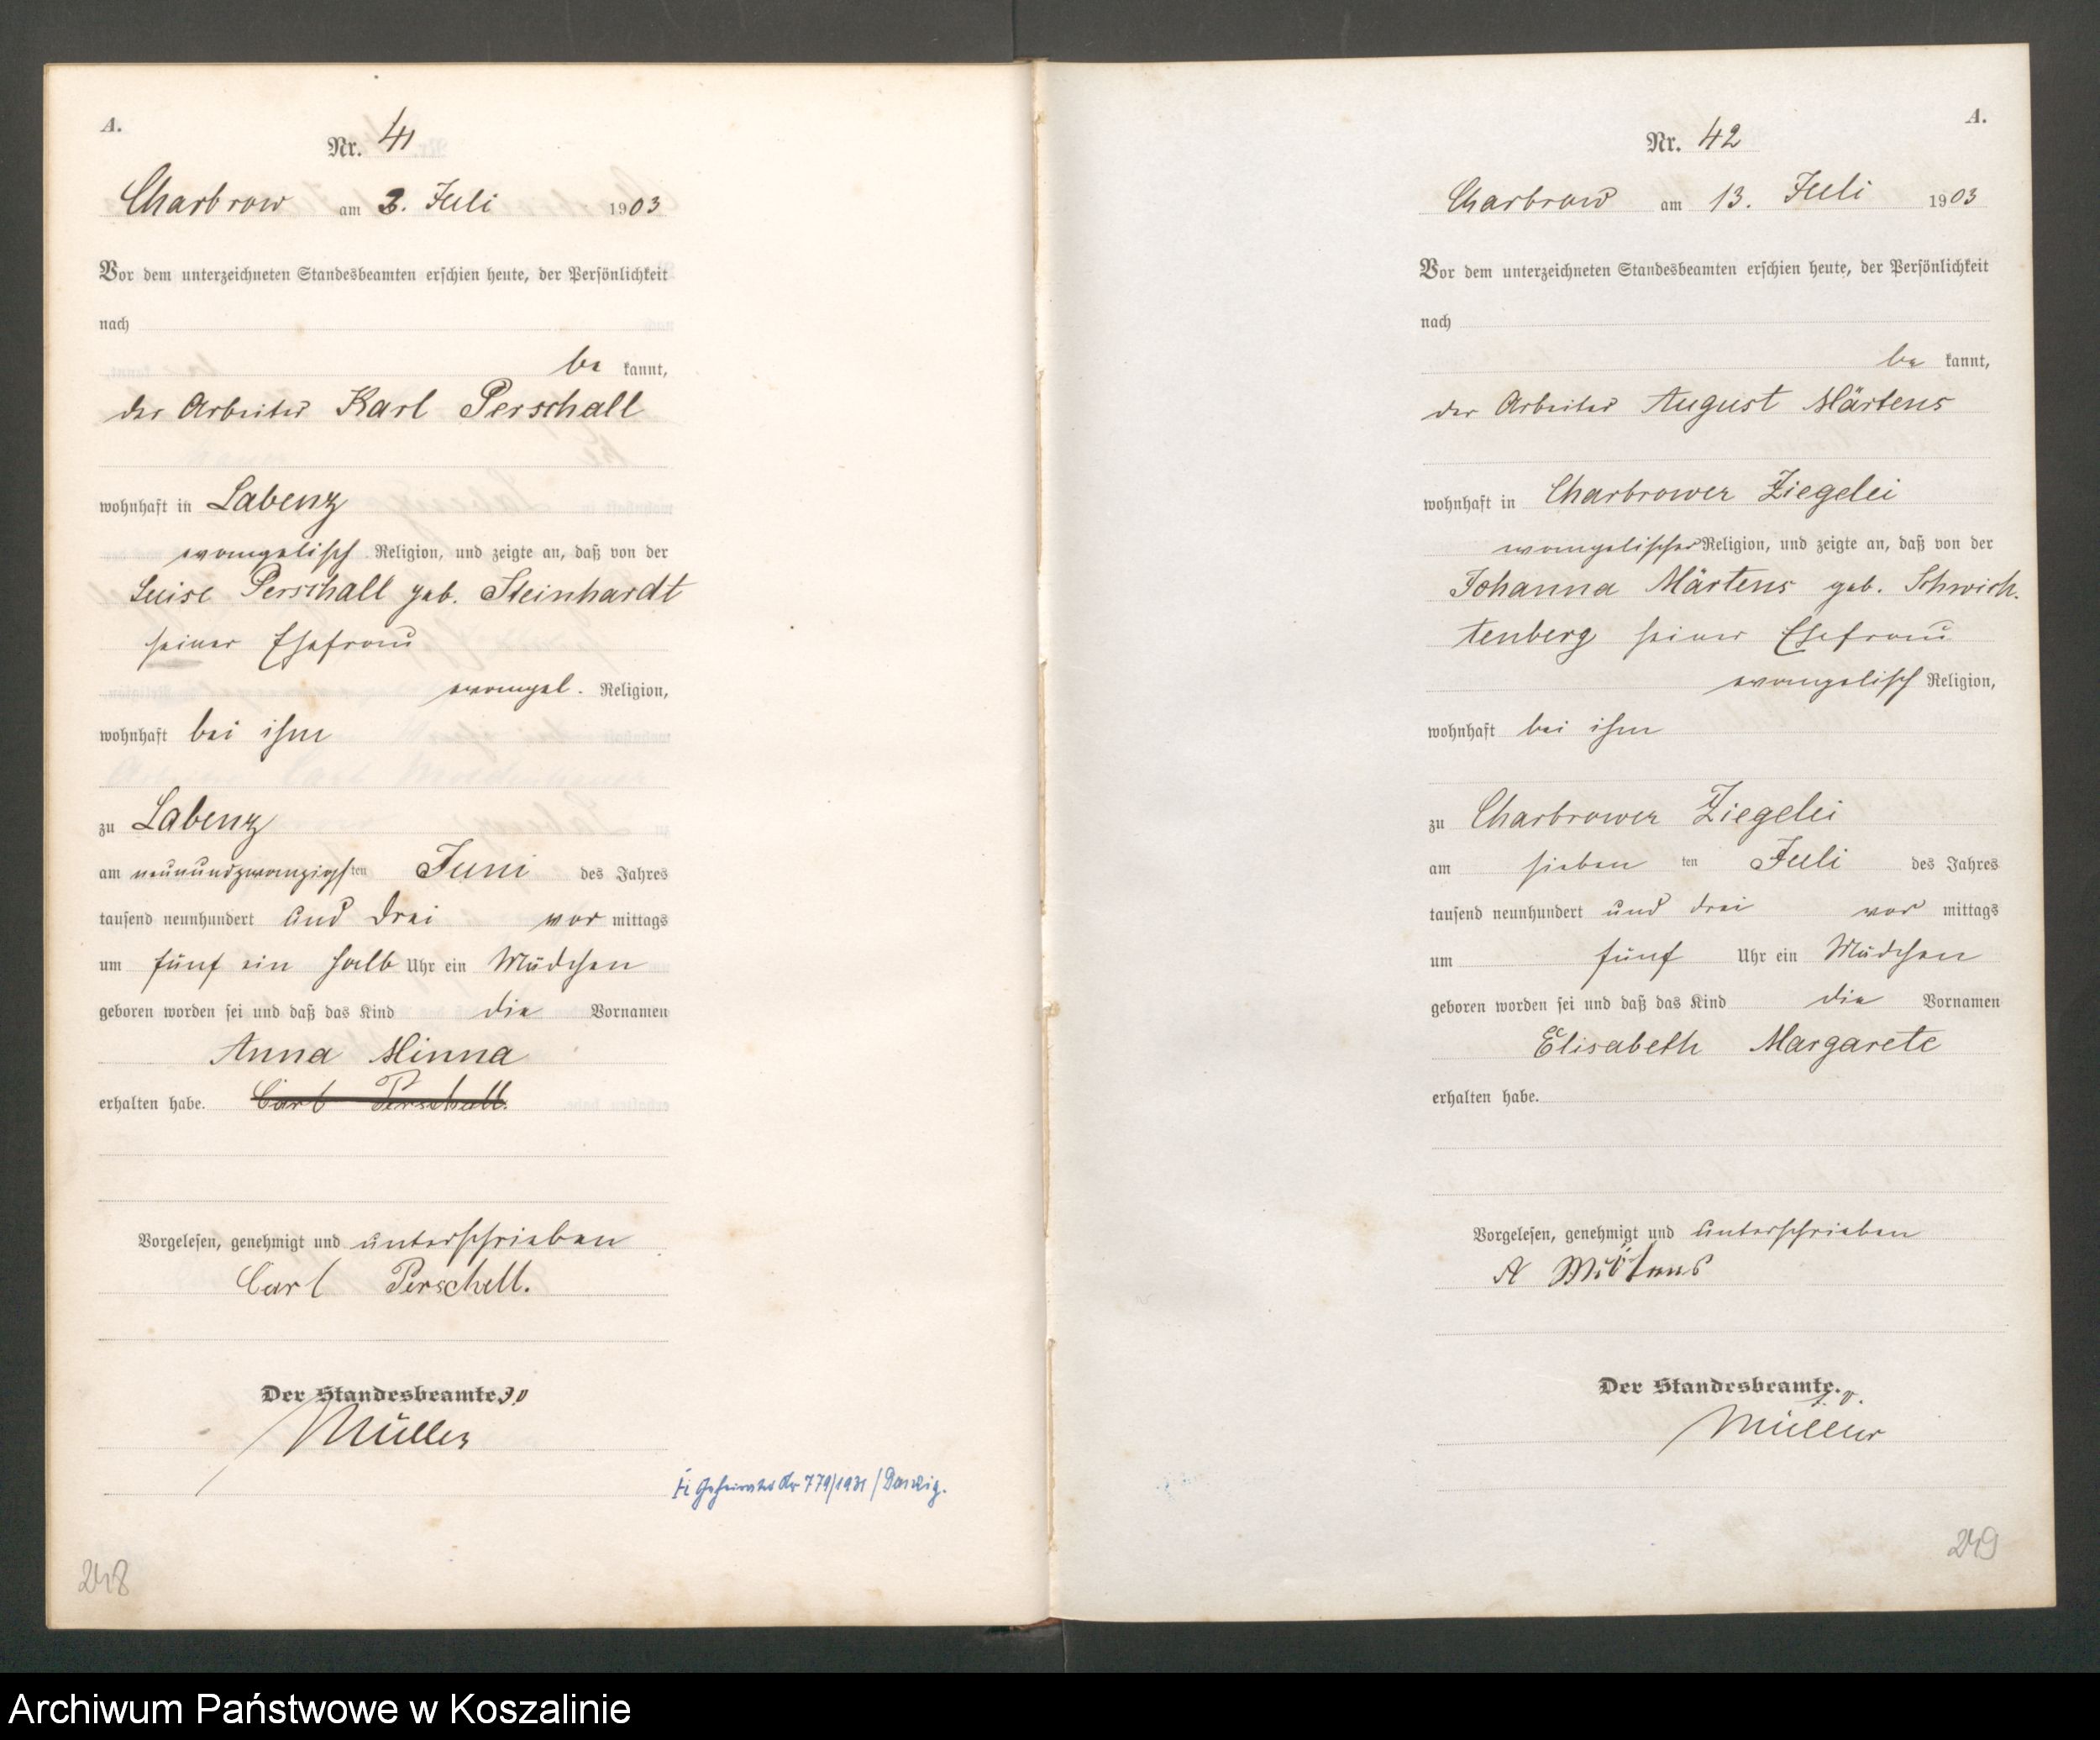 A.
Nr. 41
Charbrow am 3. Juli 1903
Vor dem unterzeichneten Standesbeamten erschien heute, der Persönlichkeit
nach
be kannt,
der Arbeiter Karl Perschall
wohnhaft in Labenz
evangelisch Religion, und zeigte an, daß von der
Luise Perschall geb. Steinhardt
seiner Ehefrau
evangel. Religion,
wohnhaft bei ihm
zu Labenz
am neunundzwanzigsten Juni des Jahres
tausend neunhundert und drei vor mittags
um fünf ein halb Uhr ein Mädchen
geboren worden sei und daß das Kind die Vornamen
Anna Minna
erhalten habe. Carl Perschell.
Vorgelesen, genehmigt und unterschrieben
Carl Perschell.
Der Standesbeamte.
Müller
Geheiratet Nr 779/1931/Danzig.
248
A.
Nr. 42
Charbrow am 13. Juli 1903
Vor dem unterzeichneten Standesbeamten erschien heute, der Persönlichkeit
nach
be kannt,
der Arbeiter August Märtens
wohnhaft in Charbrower Ziegelei
evangelischer Religion, und zeigte an, daß von der
Johanna Märtens geb. Schwich.
tenberg seiner Ehefrau
evangelisch Religion,
wohnhaft bei ihm
zu Charbrower Ziegelei
am sieben ten Juli des Jahres
tausend neunhundert und drei vor mittags
um fünf Uhr ein Mädchen
geboren worden sei und daß das Kind die Vornamen
Elisabeth Margarete
erhalten habe.
Vorgelesen, genehmigt und unterschrieben
A
Der Standesbeamte.
J. V.
Müller
249
Archiwum Państwowe w Koszalinie